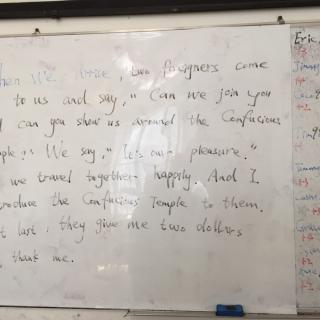 hen We arrive, two foreigners come
to us and say, " Can we join you
d can you show us around the Confucious
ple?" We say, " It's our pleasure."
we travel together happily. And I
troduce the Confucious Temple to them.
t last, they give me two dollars
thank me.
Eric,